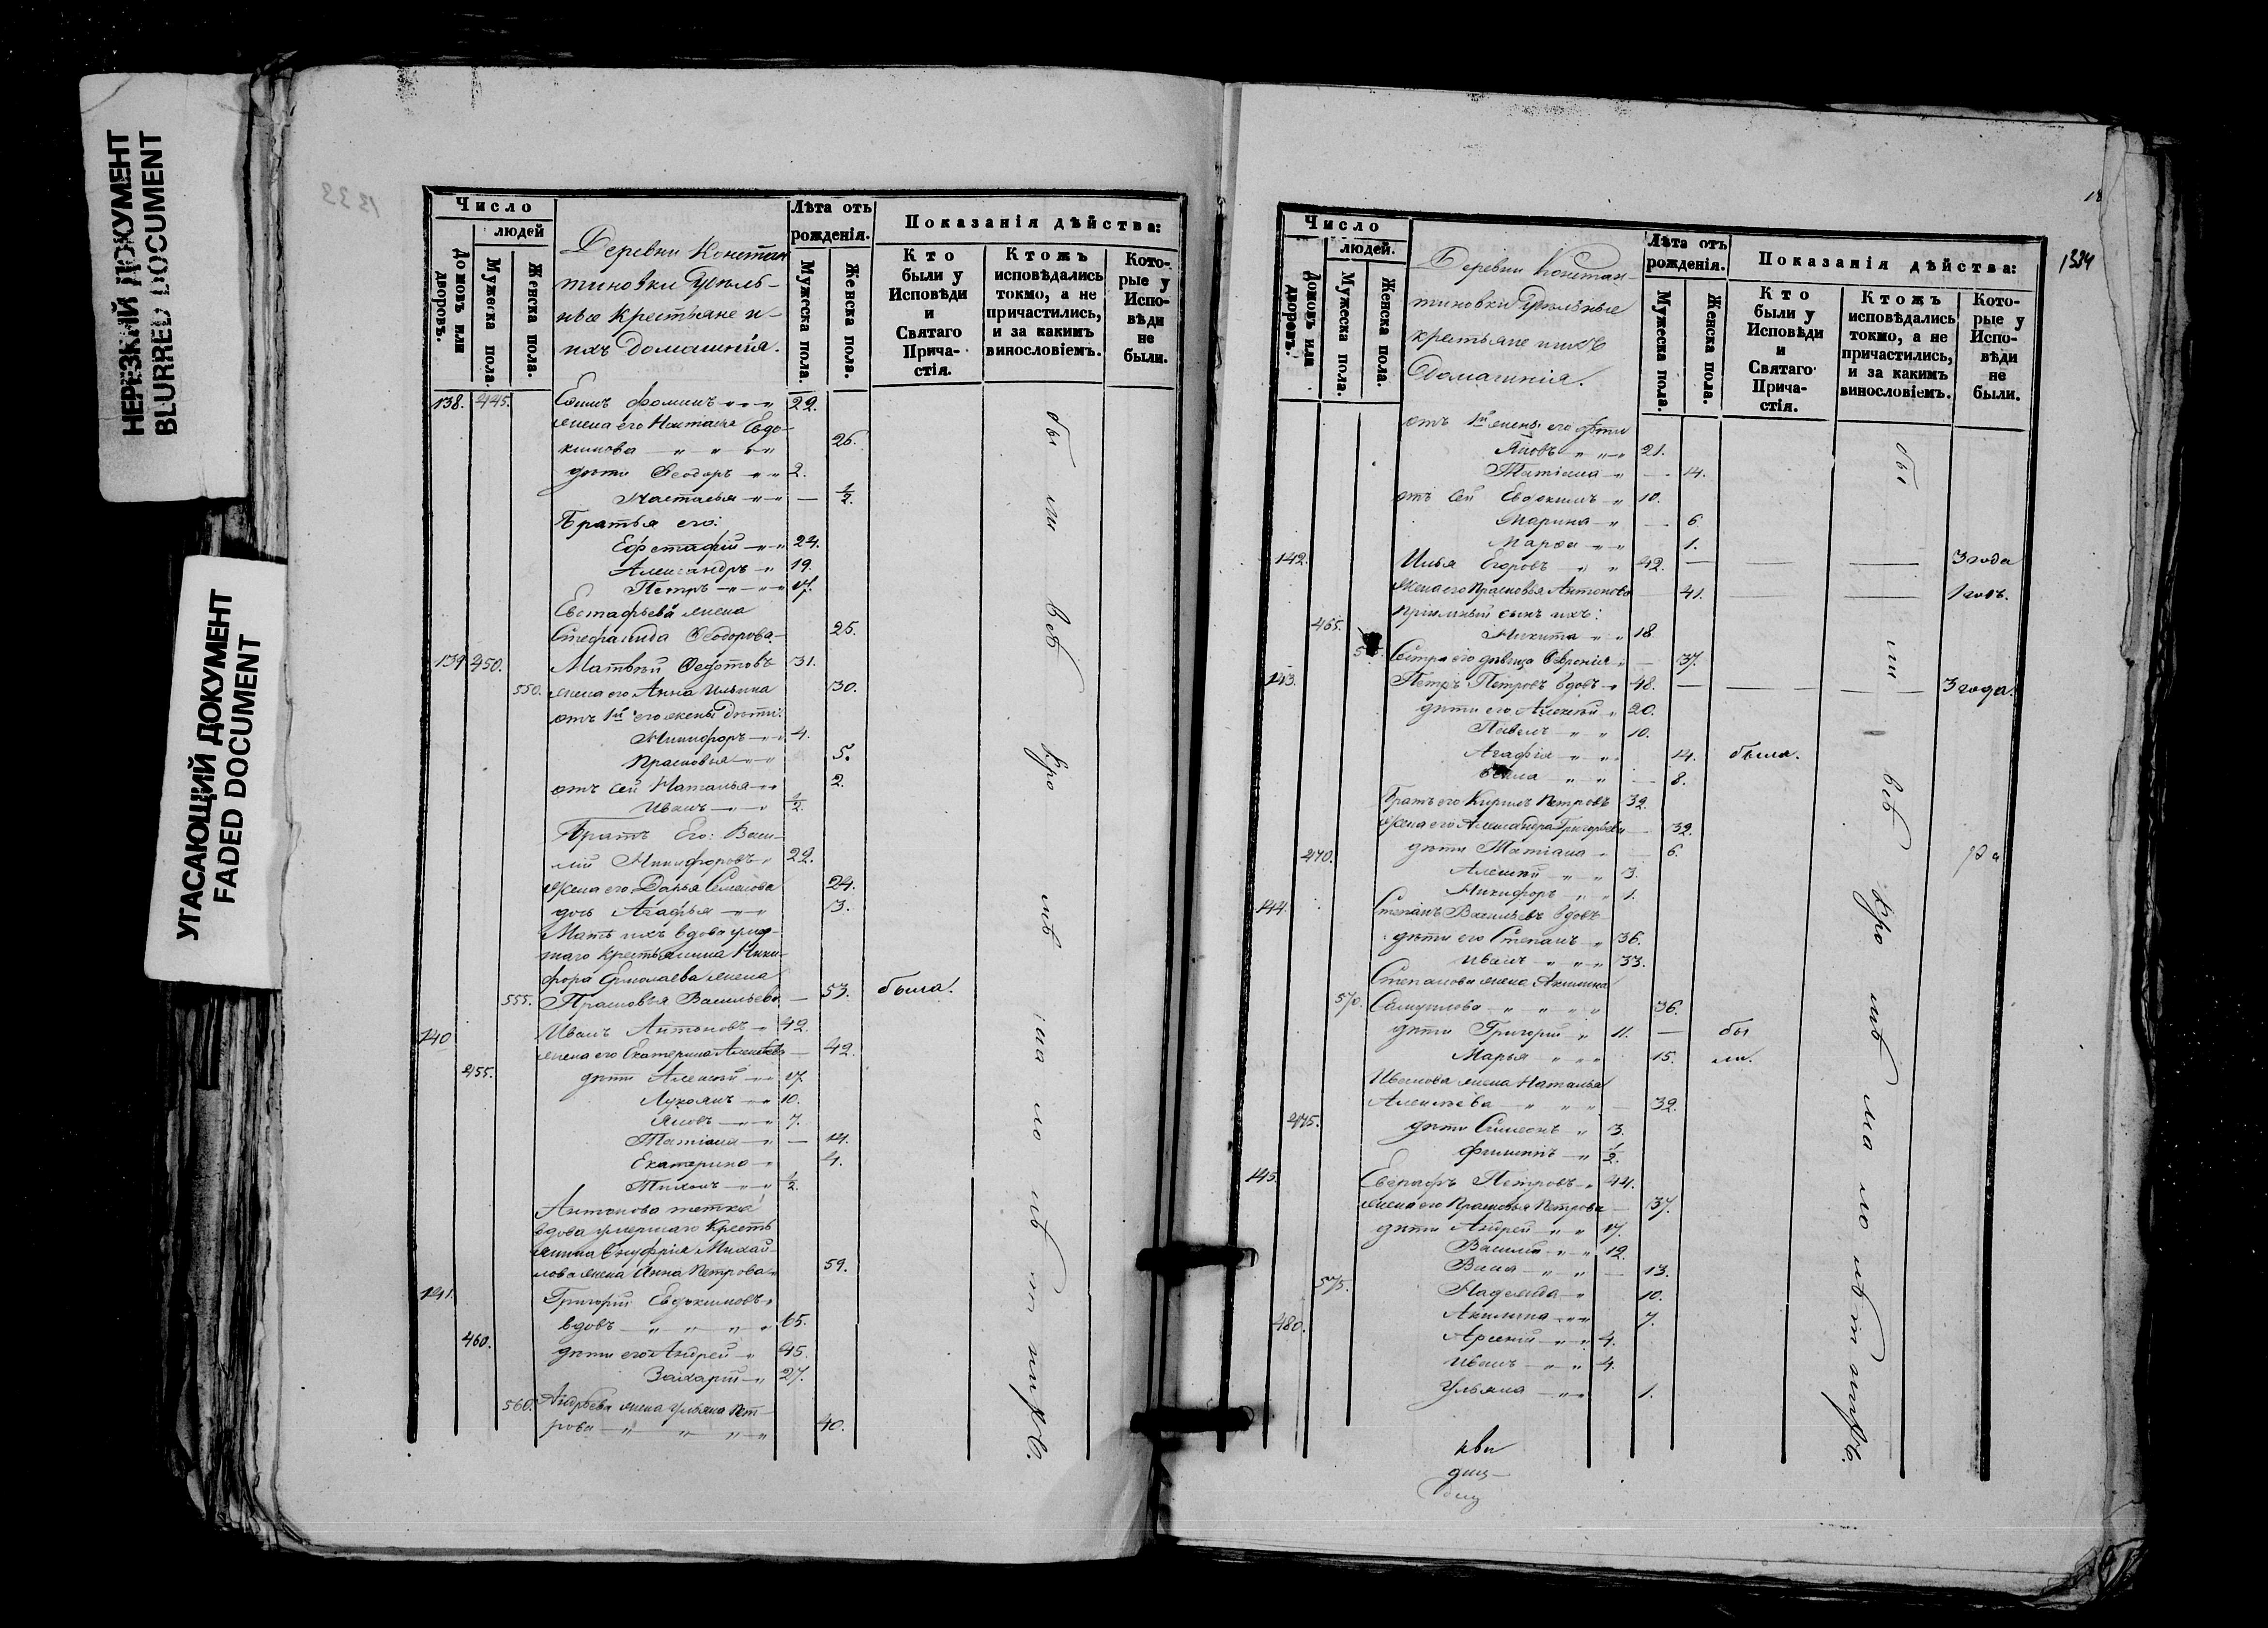 НЕРЕЗКИЙ ДОКУМЕНТ
BLURRED DOCUMENT
УГАСАЮЩИЙ ДОКУМЕНТ
FADED DOCUMENT
1333
Число
людей
Домовъ или дворовъ.
Мужеска пола.
Женска пола.
Деревни Констан
тиновки Удѣль-
ные Крестьяне и
ихъ домашнія.
Лѣта отъ рожденія.
Мужеска пола.
Женска пола.
Показанія дѣйства:
Кто были у Исповѣди и Святаго Прича-стія.
Ктожъ исповѣдались токмо, а не причастились, и за какимъ винословіемъ.
Кото-рые у Испо-вѣди не были.
138. 445. Фоминъ 22.
жена его Наталья Евдо-
кимова 26.
дѣти Ѳеодоръ 2.
Настасья 1/2.
Братья его:
Ефстафій 24.
Александръ 19.
Петръ 17.
Евстафьева жена
Стефанида Ѳеодорова 25.
139 450. Матвѣй Ѳедотовъ 31.
550. жена его Анна Ильина 30.
отъ 1й его жены дѣти:
Никифоръ 4.
Прасковья 5.
отъ сей Наталья 2.
Иванъ 1/2.
Братъ Его: Васи-
лій Никифоровъ 22.
Жена его Дарья Семенова 24.
дочь Агафья 3.
Мать ихъ вдова умер-
шаго крестьянина Ники-
фора Ермолаева жена
555. Прасковья Васильева 53. была.
140 Иванъ Антоновъ 42.
жена его Екатерина Алексѣева 42.
455. дѣти Алексѣй 17
Лукоянъ 10.
Яковъ 7.
Татіана 14.
Екатерина 4.
Тихонъ 1/2.
Антонова тетка
вдова умершаго Кресть
янина Онуфрія Михай-
лова жена Анна Петрова 59.
141. Григорій Евдокимовъ
вдовъ 65.
460. дѣти его Андрей 45.
Захарій 27.
560. Андрѣева жена Ульяна Пет-
рова 40.
бы ли всѣ кро мѣ ма ло лѣт
1334
Число
людей.
Домовъ или дворовъ.
Мужеска пола.
Женска пола.
Деревни Констан-
тиновки Удѣльные
крестьяне и ихъ
Домашнія.
Лѣта отъ рожденія.
Мужеска пола.
Женска пола.
Показанія дѣйства:
Кто были у Исповѣди и Святаго Прича-стія.
Ктожъ исповѣдались токмо, а не причастились, и за какимъ винословіемъ.
Кото-рые у Испо-вѣди не были.
отъ 1й жены его дѣти
Яковъ 21.
Татіана 14.
отъ сей Евдокимъ 10.
Марина 6.
Марѳа 1.
142. Илья Егоровъ 42. 3 года
Жена его Прасковья Антонова 41. 1 годъ.
Пріемный сынъ ихъ:
465. Никита 18.
Сестра его дѣвица 37.
143. Петръ Петровъ вдовъ 48. 3 года.
дѣти его Алексѣй 20.
Павелъ 10.
Агафія 14. была.
8.
Братъ его Кирилъ Петровъ 32.
Жена его Александра Григорьева 32.
дѣти Татіана 6.
470. Алексѣй 3.
Никифоръ 1.
144. Степанъ Васильевъ вдовъ
дѣти его Степанъ 36.
Иванъ 33.
Степанова жена Акилина
570. Самуилова 36.
дѣти Григорій 11. бы
Марья 15. ли.
Иванова жена Наталья
Алексѣева 32.
475. дѣти Симеонъ 3.
Филиппъ 1/2.
145. Евграфъ Петровъ 44.
жена его Прасковья Петрова 37.
дѣти Андрей 17.
Василій 12.
Васса 13.
575. Надежда 10.
Акилина 7.
480. Арсеній 4.
Иванъ 4.
Ульяна 1.
бы ли всѣ кро мѣ ма ло лѣт